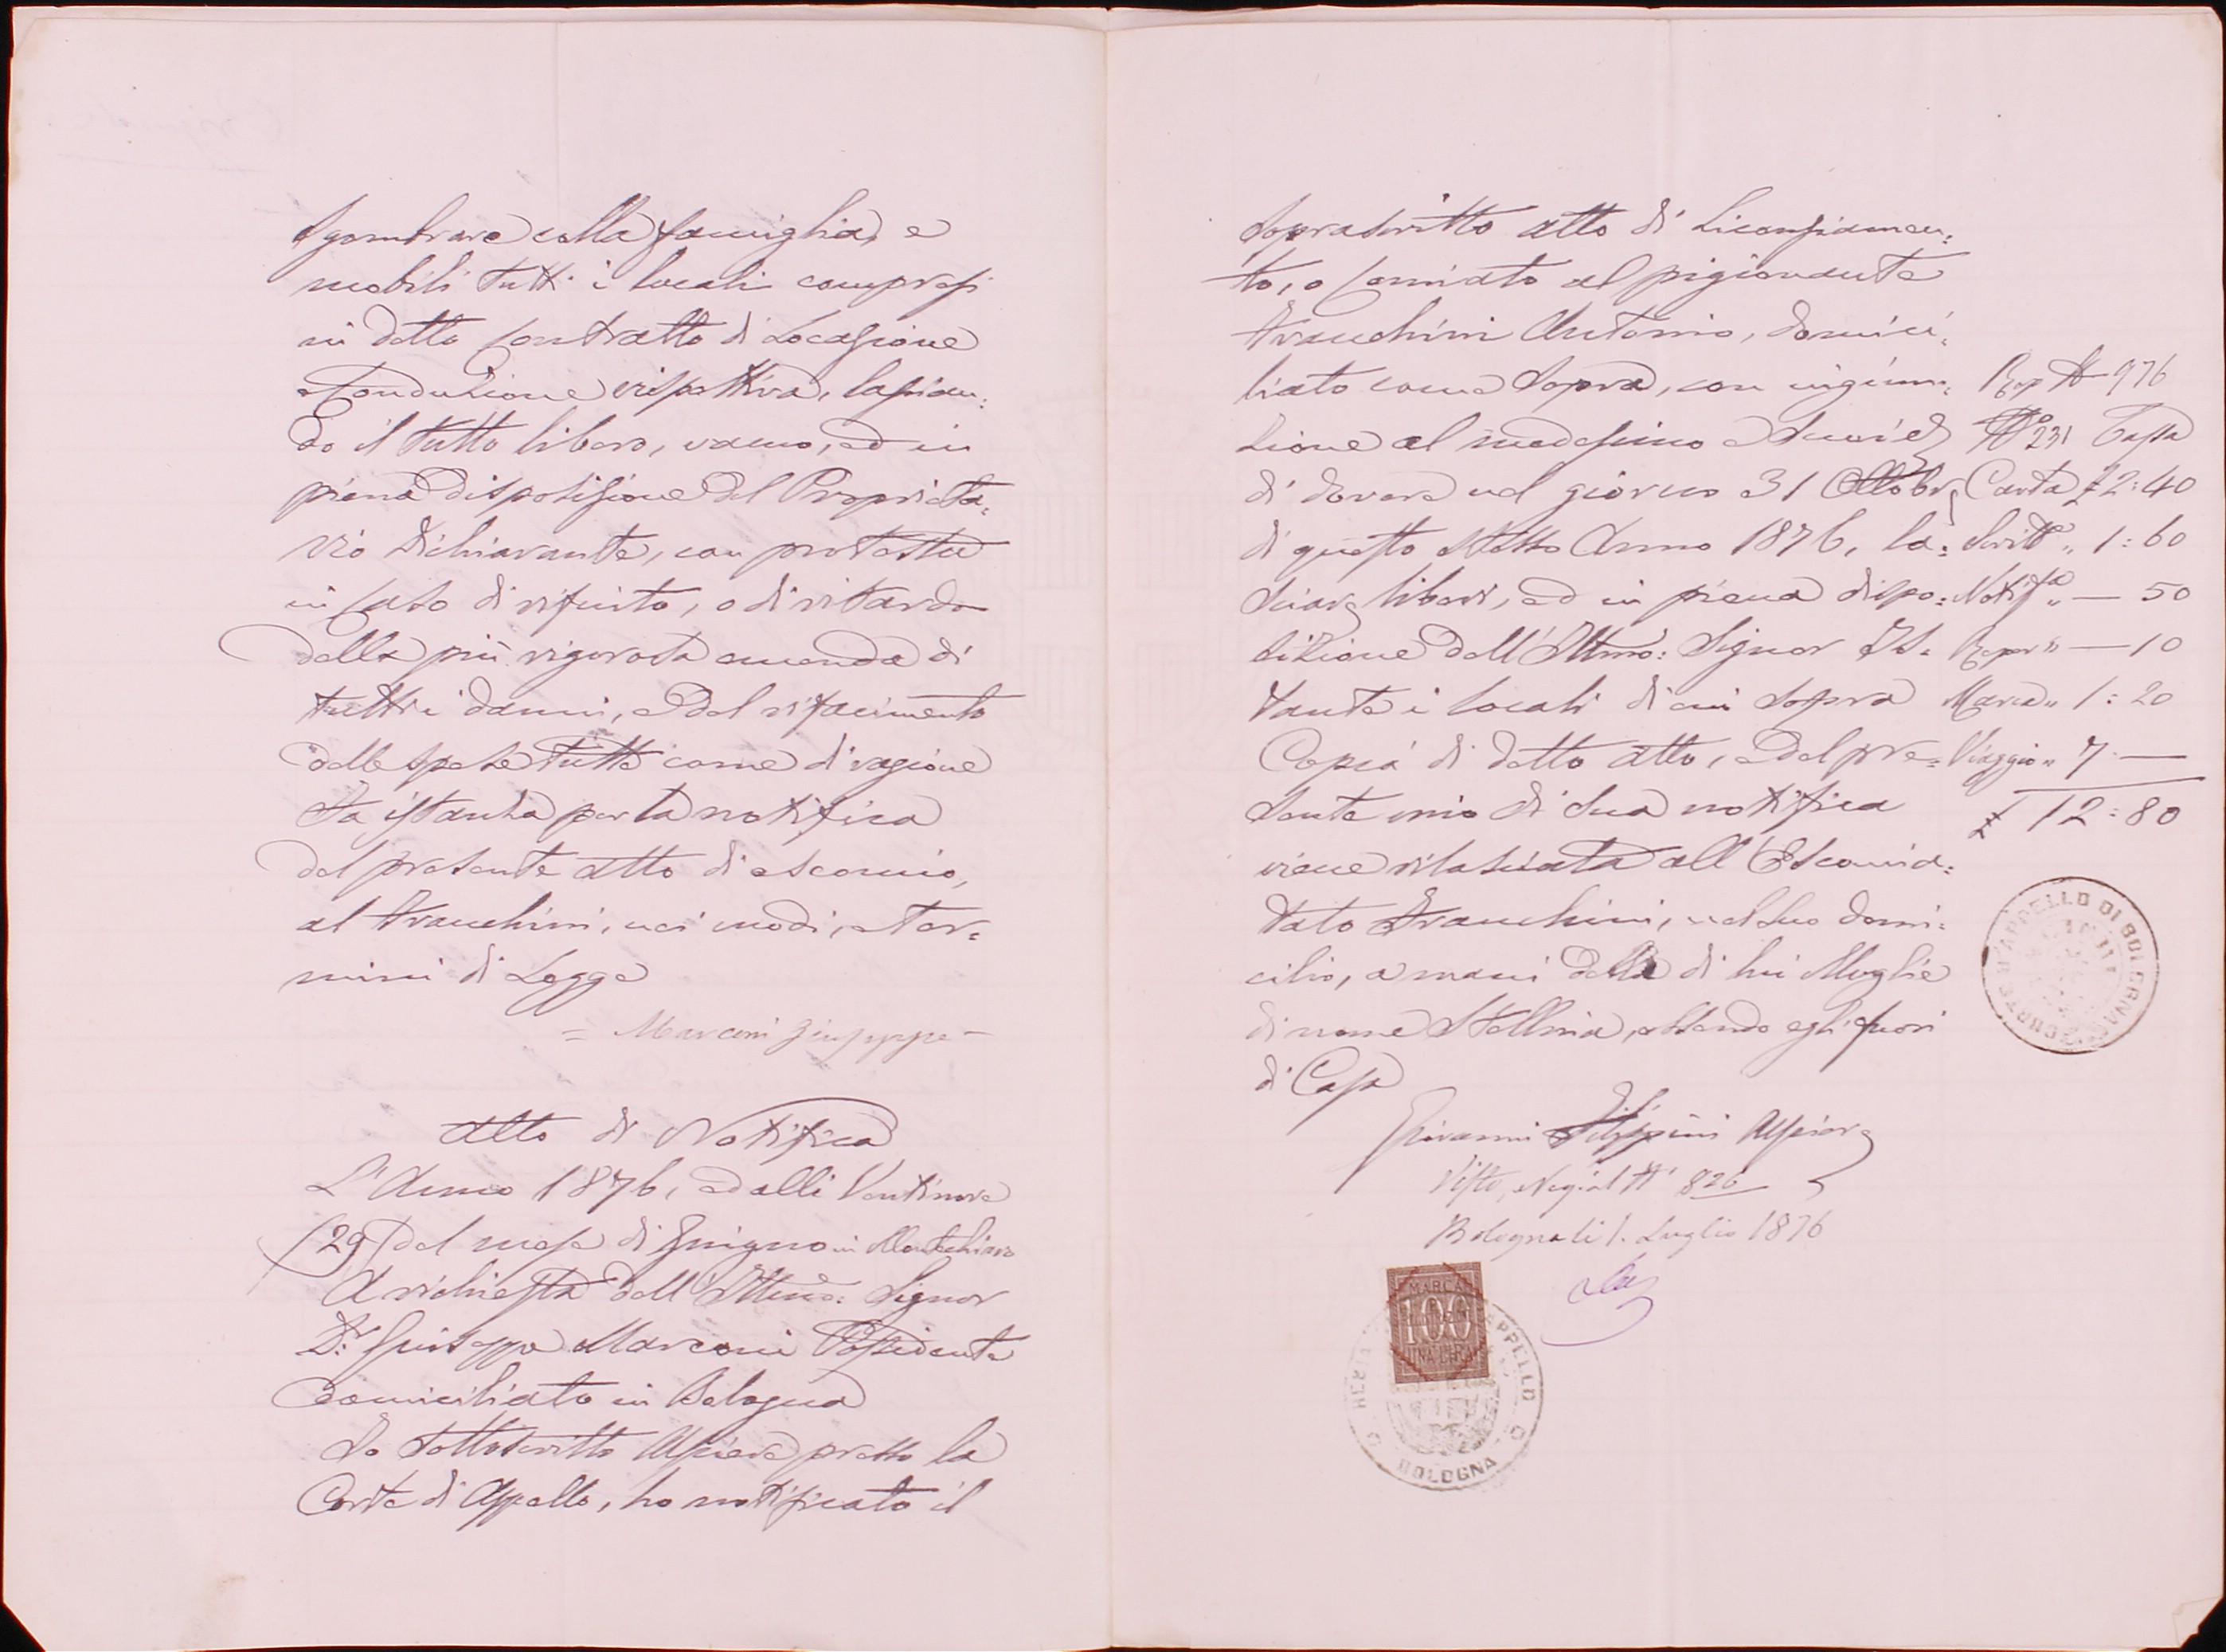 Sgombrare colla famiglia, e
mobili tutti i locali compresi
in detto Contratto di Locazione
e Conduzione rispettiva, lascian:
do il tutto libero, vacuo, ed in
piena disposizione del Proprieta:
rio Dichiarante, con protesta
in caso di rifiuto, o di ritardo
della più rigorosa emenda di
tutti i danni, e del rifacimento
delle spese tutte come di ragione
Fa istanza per la notifica
del presente atto di escomio,
al Franchini, nei modi, e ter=
mini di Legge
= Marconi Giuseppe =
Atto di Notifica
L'Anno 1876, ed alli Ventinove
(29) del mese di Giugno in Montechiaro
A richiesta dell'Illmo: Signor
Dr. Giuseppe Marconi Possidente
domiciliato in Bologna
Io sottoscritto Usciere presso la
Corte di Appello, ho notificato il
Soprascritto atto di Licenziamen:
to, o Comiato al pigionante
Franchini Antonio, domici:
liato come sopra, con ingiun:
zione al medesimo
di dovere nel giorno 31 Ottobre
di questo stesso Anno 1876, la:
sciare liberi, ed in piena dispo:
sizione dell'Illmo: Signor Is:
tante i locali di cui sopra
Copia di detto atto, e del pre=
sente mio di sua notifica
viene rilasciata all'Escomia:
tato Franchini, nel suo domi:
cilio, a mani della di lui Moglie
di nome Stellina, essendo egli fuori
di Casa
Giovanni Filippini Usciere
Visto, Regist N° 826
Bologna li 1. Luglio 1876
Rep N 976
N° 231 Tassa
Carta £ 2:40
Scritta „ 1:60
Notifa „ — 50
Reper „ — 10
Marca „ 1:20
Viaggio „ 7 —
£ 12:80
CORTE D'APPELLO DI BOLOGNA
MARCA
100
UNA LIRA
APPELLO
BOLOGNA